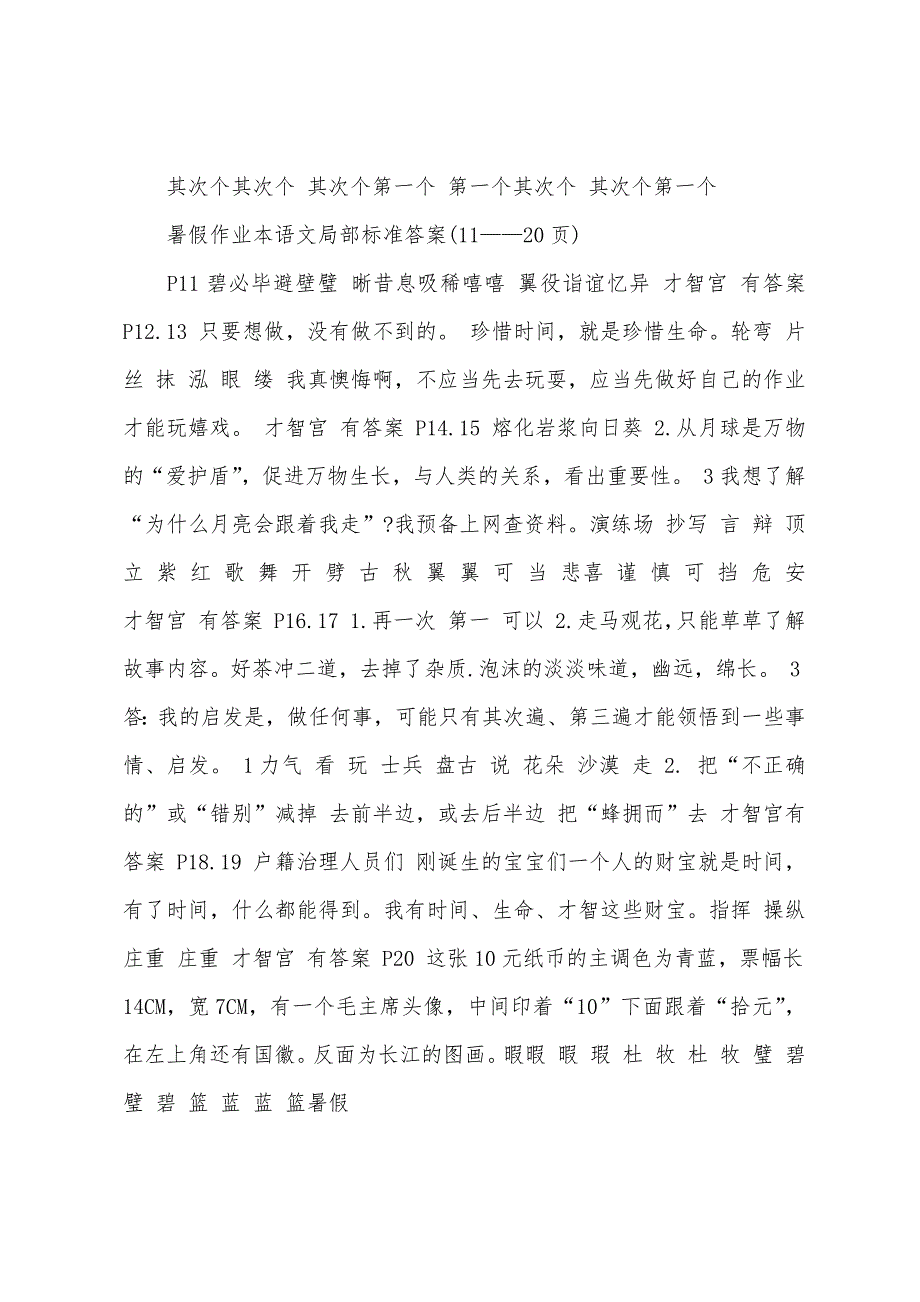 其次个其次个 其次个第一个 第一个其次个 其次个第一个
暑假作业本语文局部标准答案(11——20页)
P11碧必毕避壁璧 晰昔息吸稀嘻嘻 翼役诣谊忆异 才智宫 有答案
P12.13 只要想做，没有做不到的。 珍惜时间，就是珍惜生命。轮弯 片
丝 抹 泓 眼 缕 我真懊悔啊，不应当先去玩耍，应当先做好自己的作业
才能玩嬉戏。 才智宫 有答案 P14.15 熔化岩浆向日葵 2.从月球是万物
的“爱护盾”，促进万物生长，与人类的关系，看出重要性。 3我想了解
“为什么月亮会跟着我走”?我预备上网查资料。演练场 抄写 言 辩 顶
立 紫 红 歌 舞 开 劈 古 秋 翼 翼 可 当 悲喜 谨 慎 可 挡 危 安
才智宫 有答案 P16.17 1.再一次 第一 可以 2.走马观花,只能草草了解
故事内容。好茶冲二道，去掉了杂质.泡沫的淡淡味道，幽远，绵长。 3
答:我的启发是，做任何事，可能只有其次遍、第三遍才能领悟到一些事
情、启发。 1力气 看 玩 士兵 盘古 说 花朵 沙漠 走 2. 把“不正确
的”或“错别”减掉 去前半边，或去后半边 把“蜂拥而”去 才智宫有
答案 P18.19 户籍治理人员们 刚诞生的宝宝们一个人的财宝就是时间，
有了时间，什么都能得到。我有时间、生命、才智这些财宝。指挥 操纵
庄重 庄重 才智宫 有答案 P20 这张10元纸币的主调色为青蓝，票幅长
14CM，宽7CM，有一个毛主席头像，中间印着“10”下面跟着“拾元”，
在左上角还有国徽。反面为长江的图画。暇暇 暇 瑕 杜 牧 杜 牧 璧 碧
璧 碧 篮 蓝 蓝 篮暑假